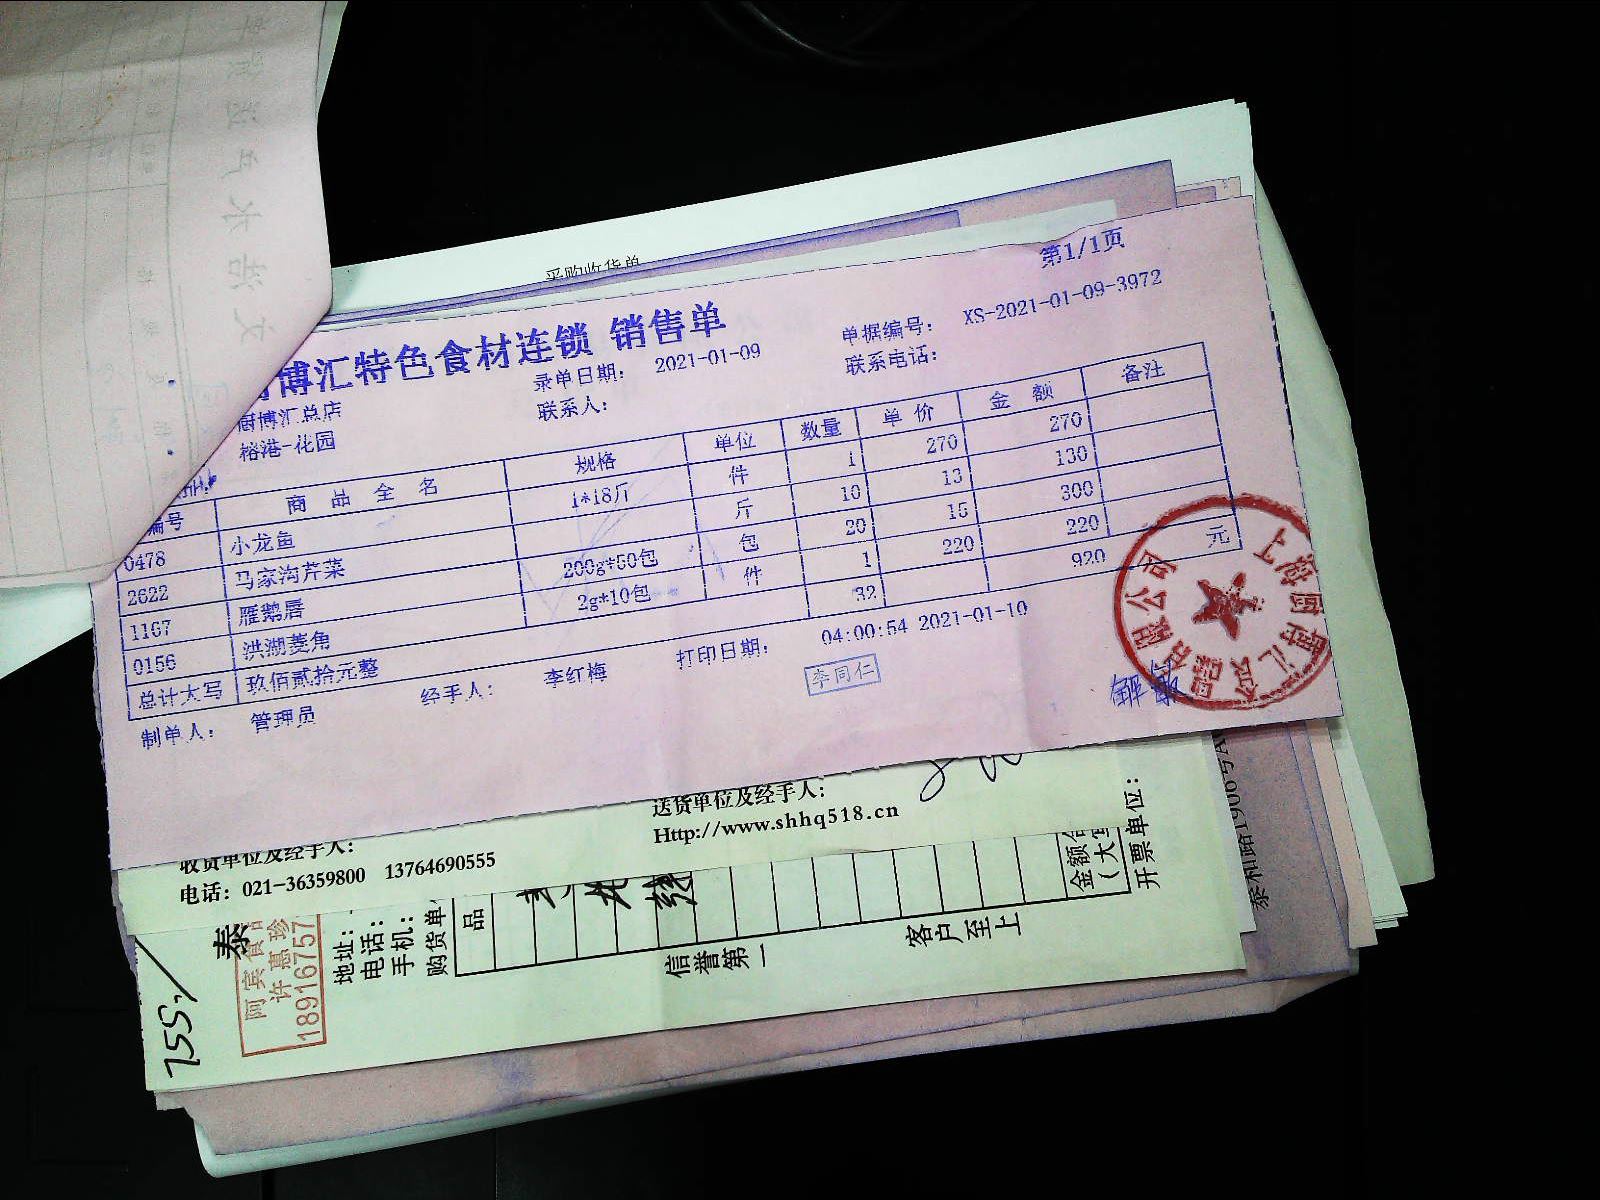 采购收货单
第1/1页
博汇特色食材连锁 销售单
单据编号： XS-2021-01-09-3972
录单日期： 2021-01-09
联系电话：
厨博汇总店
联系人：
榕港-花园
编号 商 品 全 名 规格 单位 数量 单 价 金 额 备注
0478 小龙鱼 1*18斤 件 1 270 270
2622 马家沟芹菜 斤 10 13 130
1167 雁鹅唇 200g*50包 包 20 15 300
0156 洪湖菱角 2g*10包 件 1 220 220
总计大写 玖佰贰拾元整 32 920 元
制单人： 管理员 经手人： 李红梅 打印日期： 04:00:54 2021-01-10
李同仁
送货单位及经手人：
Http://www.shhq518.cn
收货单位及经手人：
电话：021-36359800 13764690555
755
泰
阿宾食
许惠珍
18916757
地址：
电话：
手机：
购货单
品
信誉第一
客户至上
金额
（大
开票单位：
泰和路1906号A